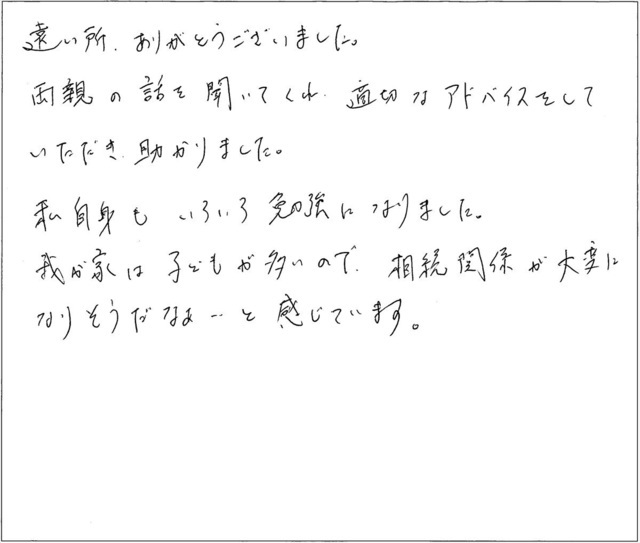 遠い所、ありがとうございました。
両親の話を聞いてくれ、適切なアドバイスをして
いただき、助かりました。
私自身も いろいろ勉強になりました。
我が家は子どもが多いので、相続関係が大変に
なりそうだなぁ…と感じています。